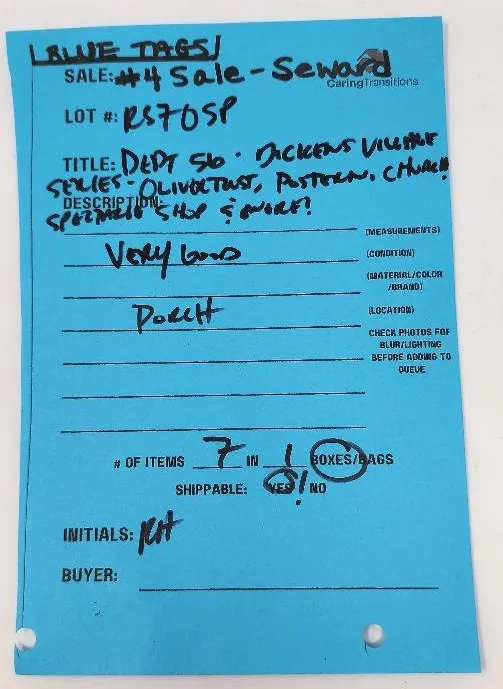 BLUE TAGS
SALE: #4 Sale - Seward
CaringTransitions
LOT #: RS705P
TITLE: DEPT 56 - DICKENS VILLAGE
SERIES - OLIVER TWIST, POSTERN, CHURCH,
DESCRIPTION:
SPECTACLE SHOP & MORE!
(MEASUREMENTS)
VERY GOOD
(CONDITION)
(MATERIAL/COLOR
/BRAND)
PORCH
(LOCATION)
CHECK PHOTOS FOR
BLUR/LIGHTING
BEFORE ADDING TO
QUEUE
# OF ITEMS 7 IN 1 BOXES/BAGS
SHIPPABLE: YES! / NO
INITIALS: RH
BUYER: